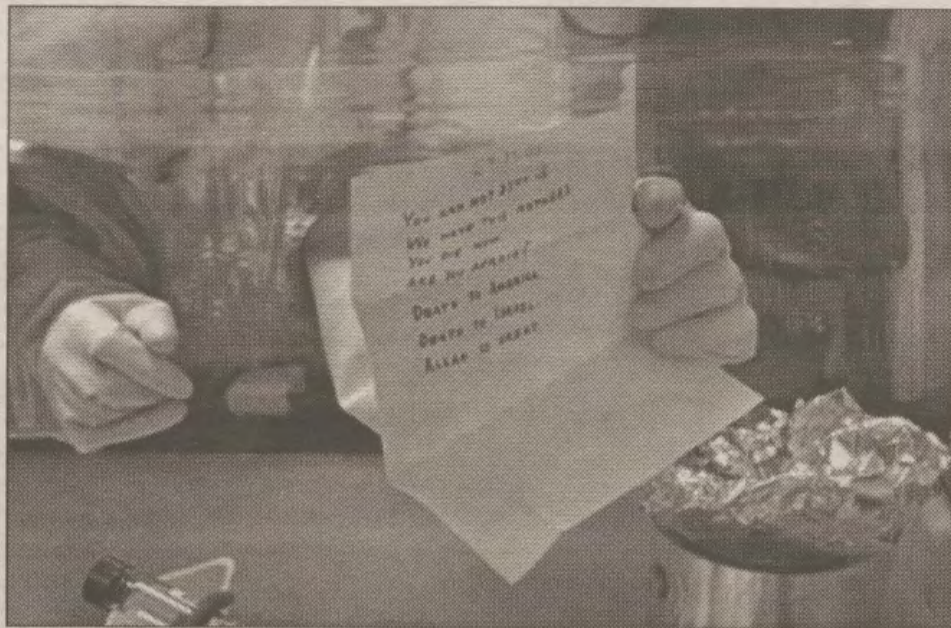 YOU CAN NOT STOP US.
WE HAVE THIS ANTHRAX.
YOU DIE NOW.
ARE YOU AFRAID?
DEATH TO AMERICA.
DEATH TO ISRAEL.
ALLAH IS GREAT.